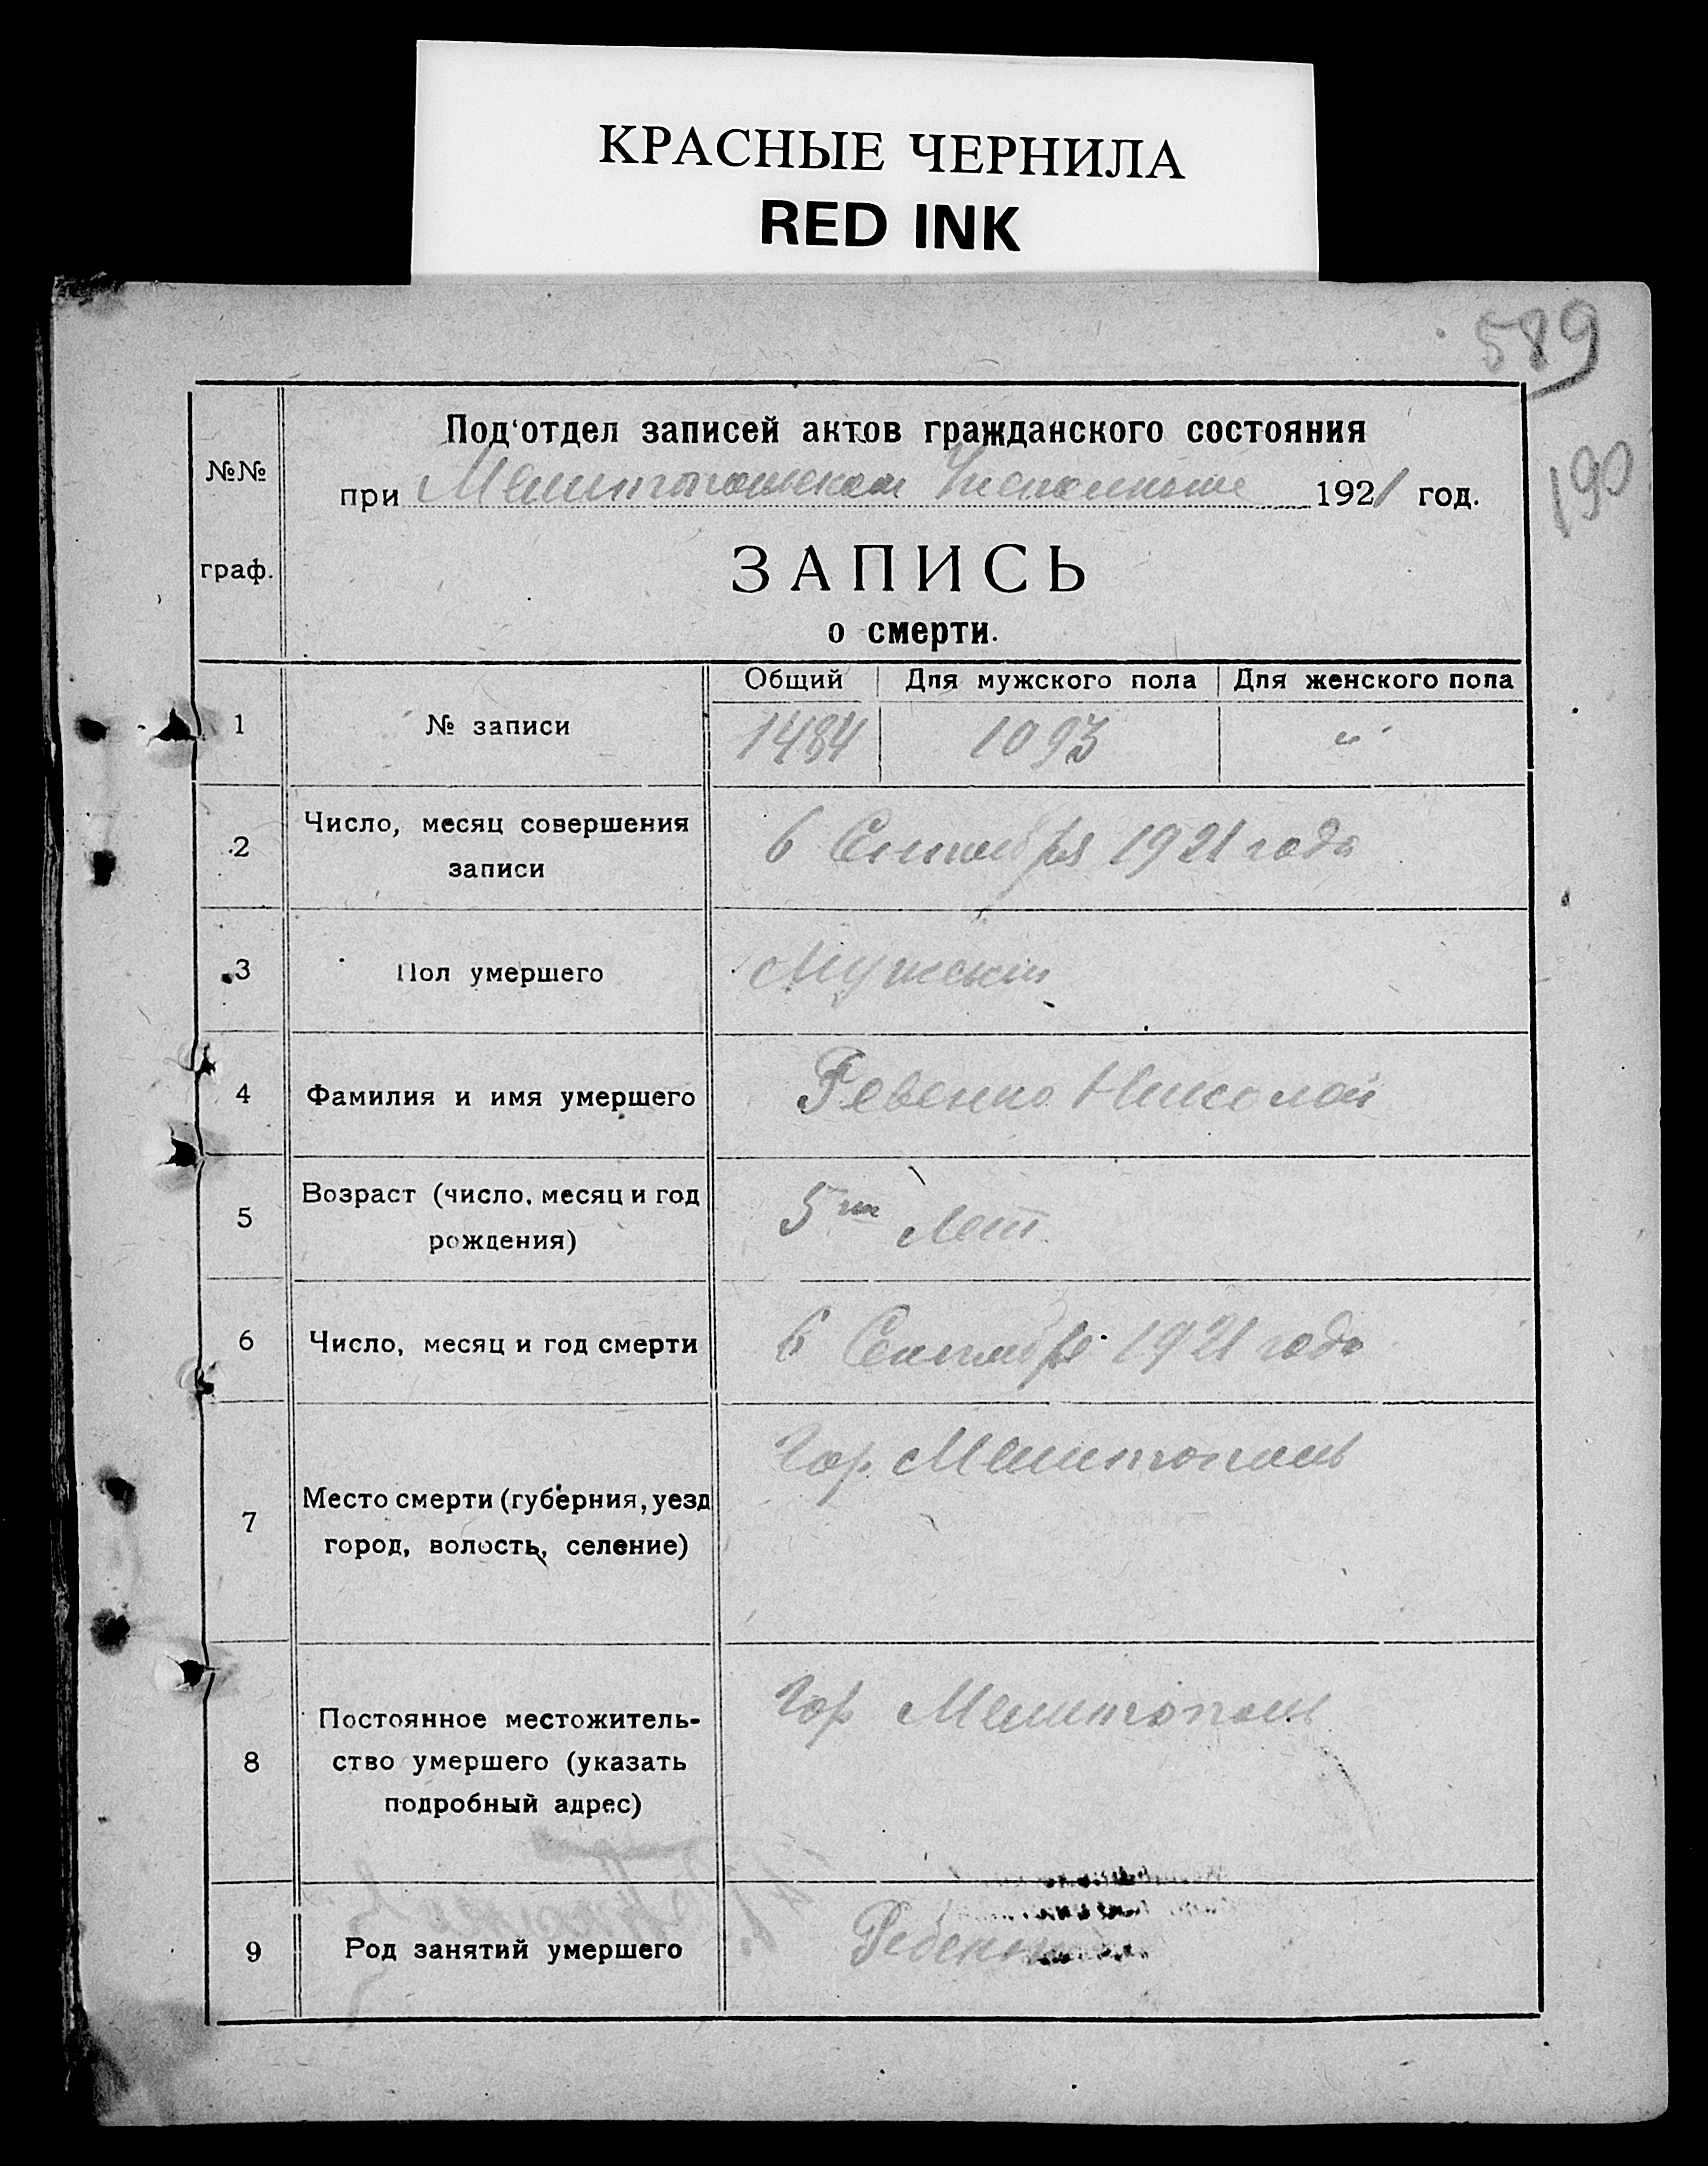 КРАСНЫЕ ЧЕРНИЛА
RED INK
589
190
Под'отдел записей актов гражданского состояния
№№
граф.
при Мелитопольском Исполкоме 1921 год.
ЗАПИСЬ
о смерти.
Общий Для мужского пола Для женского пола
1 № записи 1484 1093 "
2 Число, месяц совершения
записи
6 Сентября 1921 года
3 Пол умершего Мужской
4 Фамилия и имя умершего Ревенко Николай
5 Возраст (число, месяц и год
рождения)
5ти Лет
6 Число, месяц и год смерти 6 Сентября 1921 года
7 Место смерти (губерния, уезд
город, волость, селение)
Гор. Мелитополь
8 Постоянное местожитель-
ство умершего (указать
подробный адрес)
Гор Мелитополь
9 Род занятий умершего Ребенок